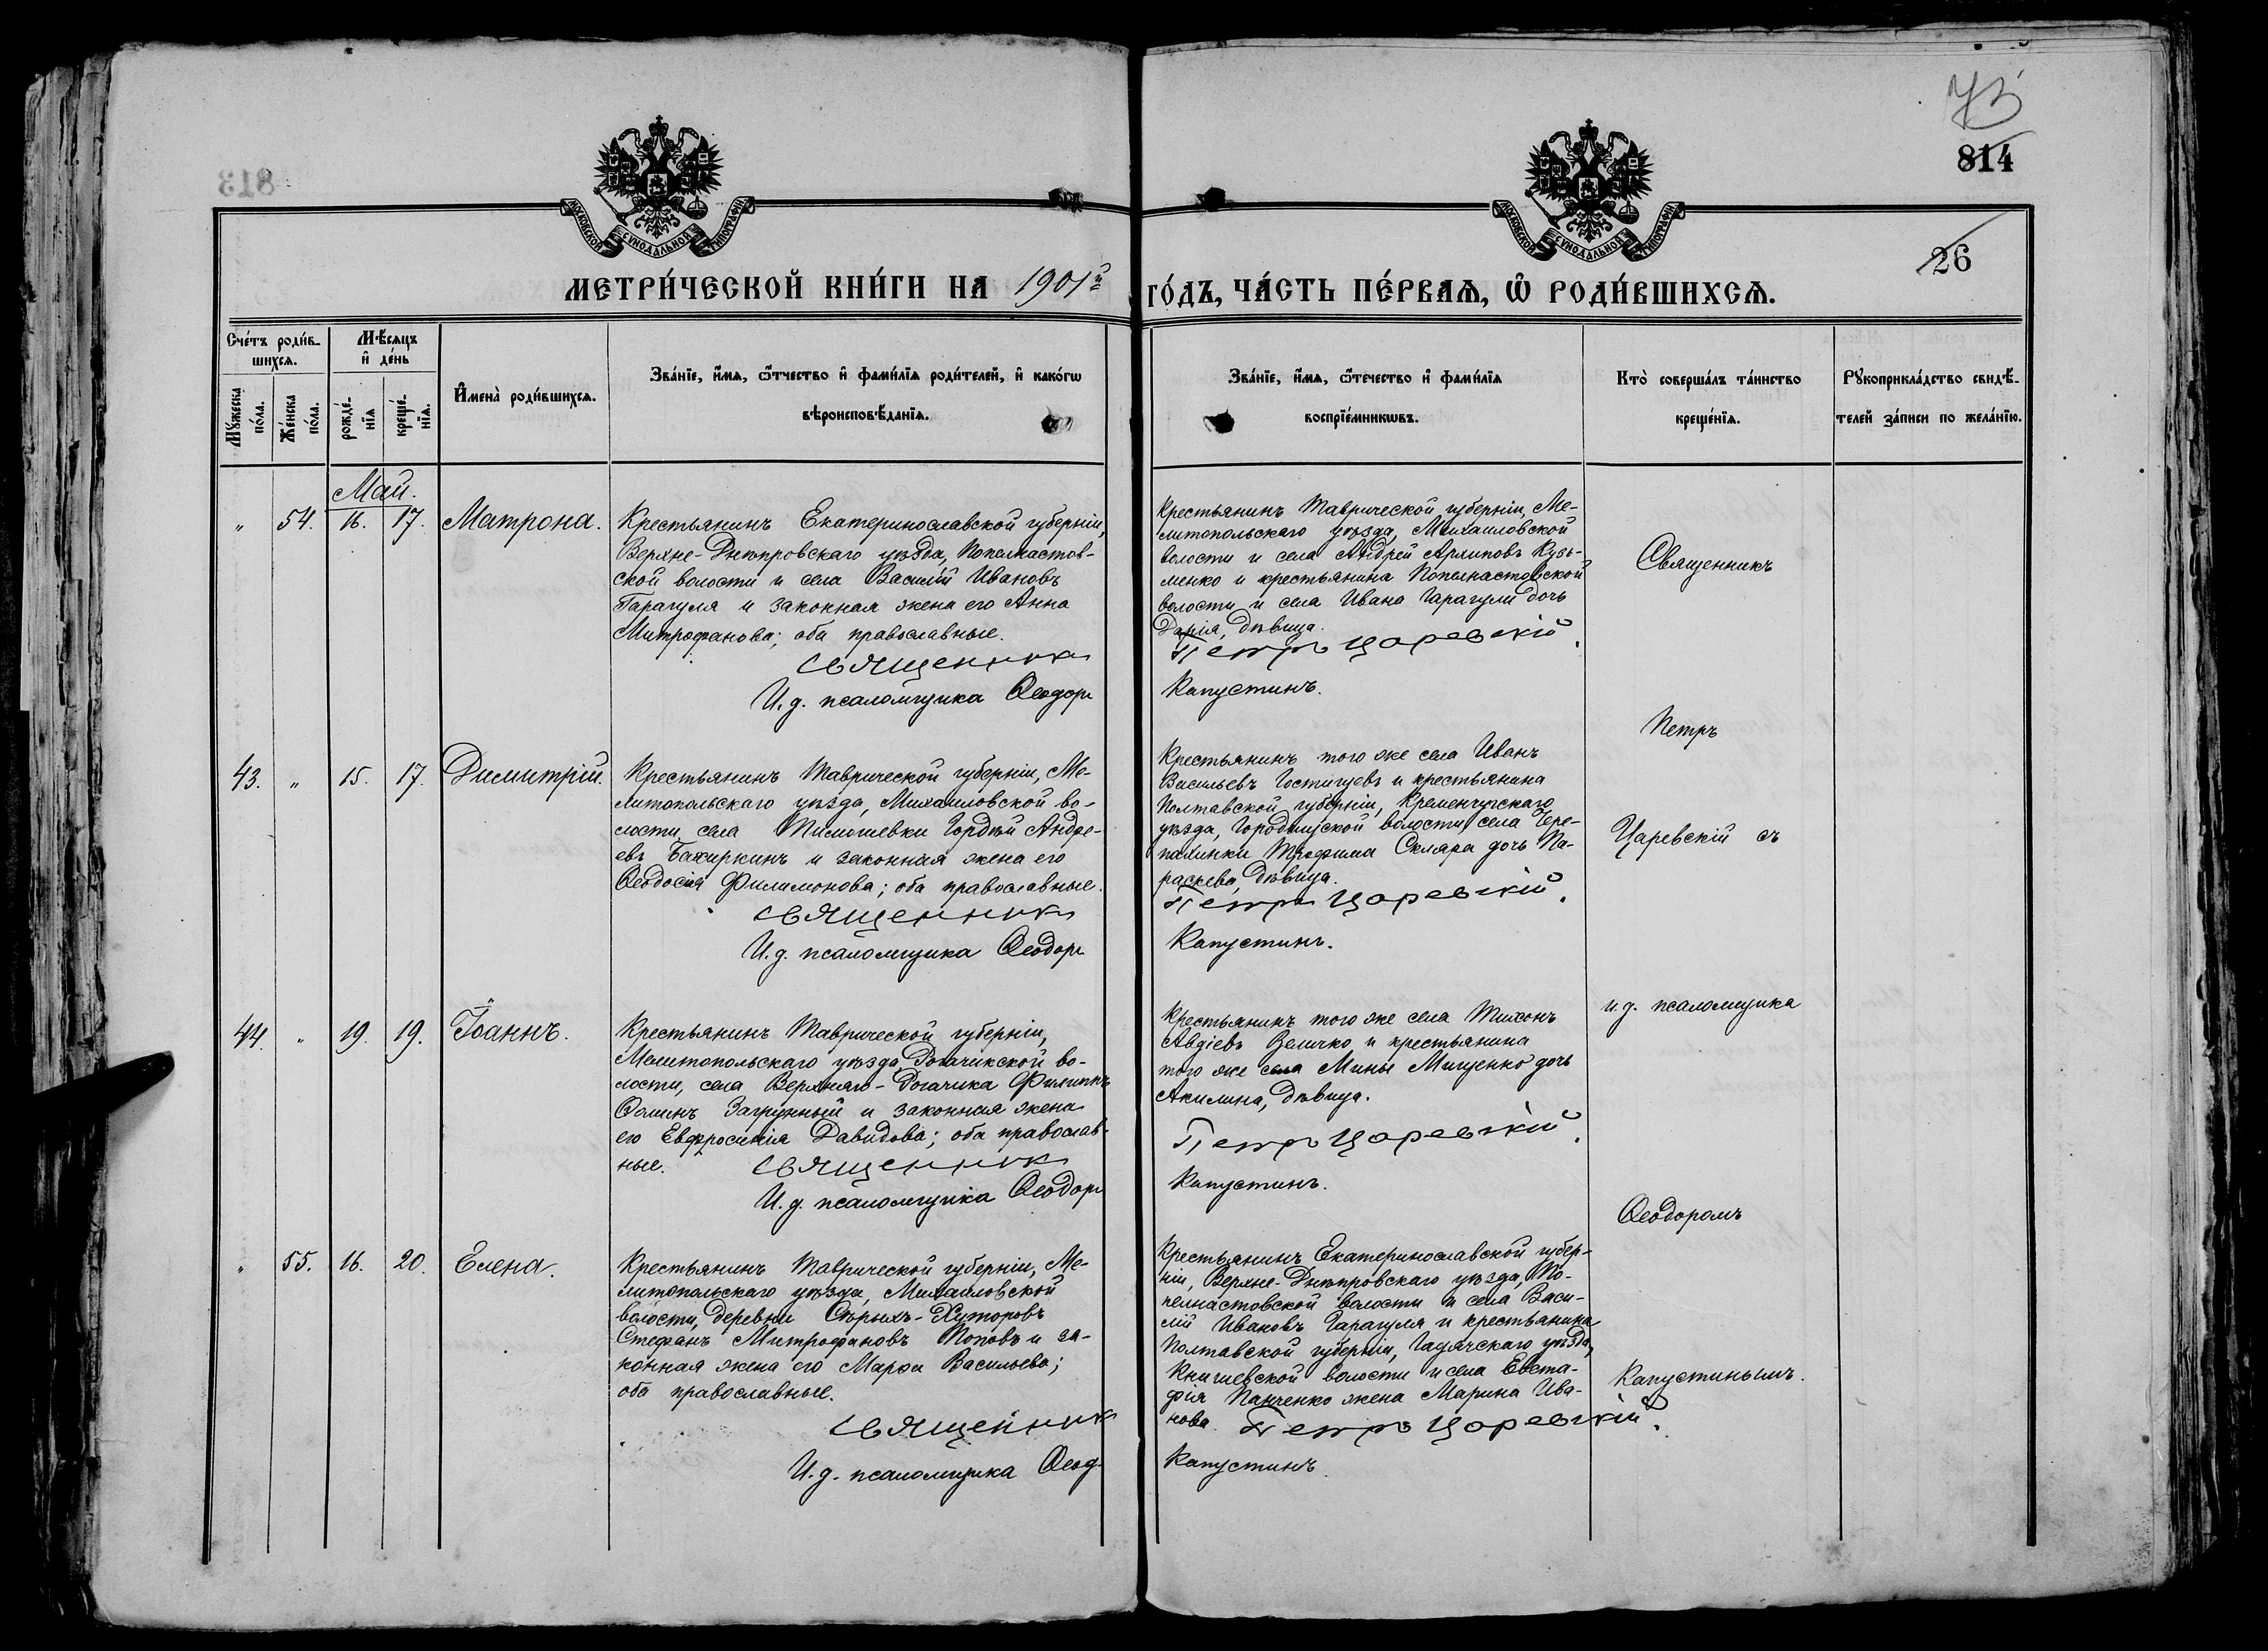 73
814
813
26
МОСКОВСКОЙ СУНОДАЛЬНОЙ ТИПОГРАФІИ
МОСКОВСКОЙ СУНОДАЛЬНОЙ ТИПОГРАФІИ
МЕТРИ́ЧЕСКОЙ КНИ́ГИ НА 1901й ГО́ДЪ, ЧА́СТЬ ПЕ́РВАѦ, Ѡ РОДИ́ВШИХСѦ.
Сче́тъ роди́в-
шихсѧ.
Мꙋ́жеска
по́ла.
Же́нска
по́ла.
Мѣ́сѧцъ
и҆ де́нь
рожде́-
нїѧ
креще́-
нїѧ.
И҆мена̀ роди́вшихсѧ.
Зва́нїе, и҆́мѧ, ѻ҆́тчество и҆ фами́лїѧ роди́телей, и҆ како́гѡ
вѣроисповѣ́данїѧ.
Зва́нїе, и҆́мѧ, ѻ҆те́чество и҆ фами́лїѧ
воспрїе́мникѡвъ.
Кто̀ соверша́лъ та́инство
креще́нїѧ.
Рꙋкоприкла́дство свидѣ́-
телей за́писи по жела́нїю.
Май.
„ 54. 16. 17. Матрона.
Крестьянинъ Екатеринославской губерніи,
Верхне-Днѣпровскаго уѣзда, Попелнастов-
ской волости и села Василій Ивановъ
Гарагуля и законная жена его Анна
Митрофанова; оба православные.
Священникъ
И.д. псаломщика Ѳеодоръ
Крестьянинъ Таврической губерніи, Ме-
литопольскаго уѣзда, Михаиловской
волости и села Андрей Архиповъ Кузь-
менко и крестьянина Попелнастовской
волости и села Ивана Гарагули дочь
Дарія, дѣвица.
Петръ Царевскій.
Капустинъ.
43. „ 15. 17. Димитрій.
Крестьянинъ Таврической губерніи, Ме-
литопольскаго уѣзда, Михаиловской во-
лости, села Тимошевки Гордѣй Андре-
евъ Бажиркинъ и законная жена его
Ѳеодосія Филимонова; оба православные.
Священникъ
И.д. псаломщика Ѳеодоръ
Крестьянинъ того же села Иванъ
Васильевъ Гостищевъ и крестьянина
Полтавской губерніи, Кременчугскаго
уѣзда, волости, села Чере-
пахинки Трофима Скляра дочь Па-
раскева, дѣвица.
Петръ Царевскій.
Капустинъ.
44. „ 19. 19. Іоаннъ.
Крестьянинъ Таврической губерніи,
Мелитопольскаго уѣзда, Рогачикской во-
лости, села Верхняго-Рогачика Филиппъ
Ѳоминъ и законная жена
его Евфросинія Давидова; оба православ-
ные. Священникъ
И.д. псаломщика Ѳеодоръ
Крестьянинъ того же села Тихонъ
Авдіевъ Величко и крестьянина
того же села Мины Мищенко дочь
Акилина, дѣвица.
Петръ Царевскій.
Капустинъ.
„ 55. 16. 20. Елена.
Крестьянинъ Таврической губерніи, Ме-
литопольскаго уѣзда, Михаиловской
волости, деревни Старыхъ-Хуторовъ
Стефанъ Митрофановъ Поповъ и за-
конная жена его Марѳа Васильева;
оба православные.
Священникъ
И.д. псаломщика Ѳеод.
Крестьянинъ Екатеринославской губер-
ніи, Верхне-Днѣпровскаго уѣзда, По-
пелнастовской волости и села Васи-
лій Ивановъ Гарагуля и крестьянина
Полтавской губерніи, Гадячскаго уѣзда,
Книшевской волости и села Евста-
фія Панченко жена Марина Ива-
нова. Петръ Царевскій.
Капустинъ.
Священникъ
Петръ
Царевскій съ
и.д. псаломщика
Ѳеодоромъ
Капустинымъ.